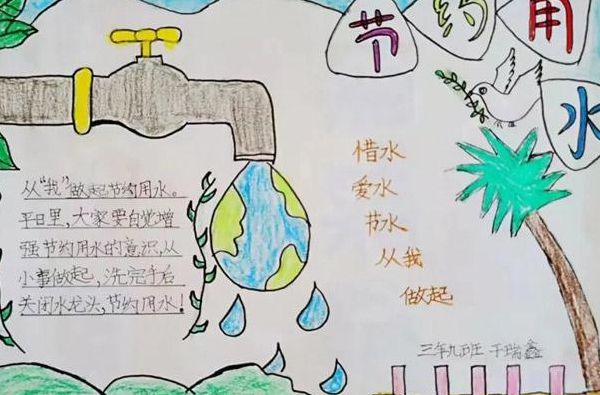 节约用水
从“我”做起节约用水。
平日里,大家要自觉增
强节约用水的意识,从
小事做起,洗完手后
关闭水龙头,节约用水!
惜水
爱水
节水
从我
做起
三年九班 于瑞鑫